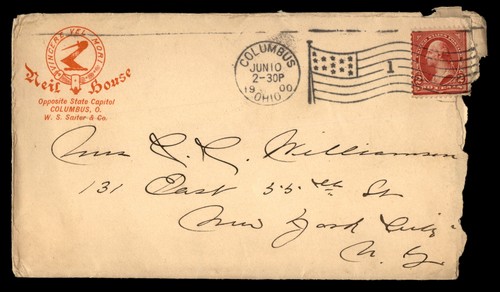 VINCERE VEL MORI
Neil House
Opposite State Capitol
COLUMBUS, O.
W. S. Sarter & Co.
COLUMBUS
JUN 10
2-30P
1900
OHIO
1
2 2
131 East 55th St
New York City
N. Y.